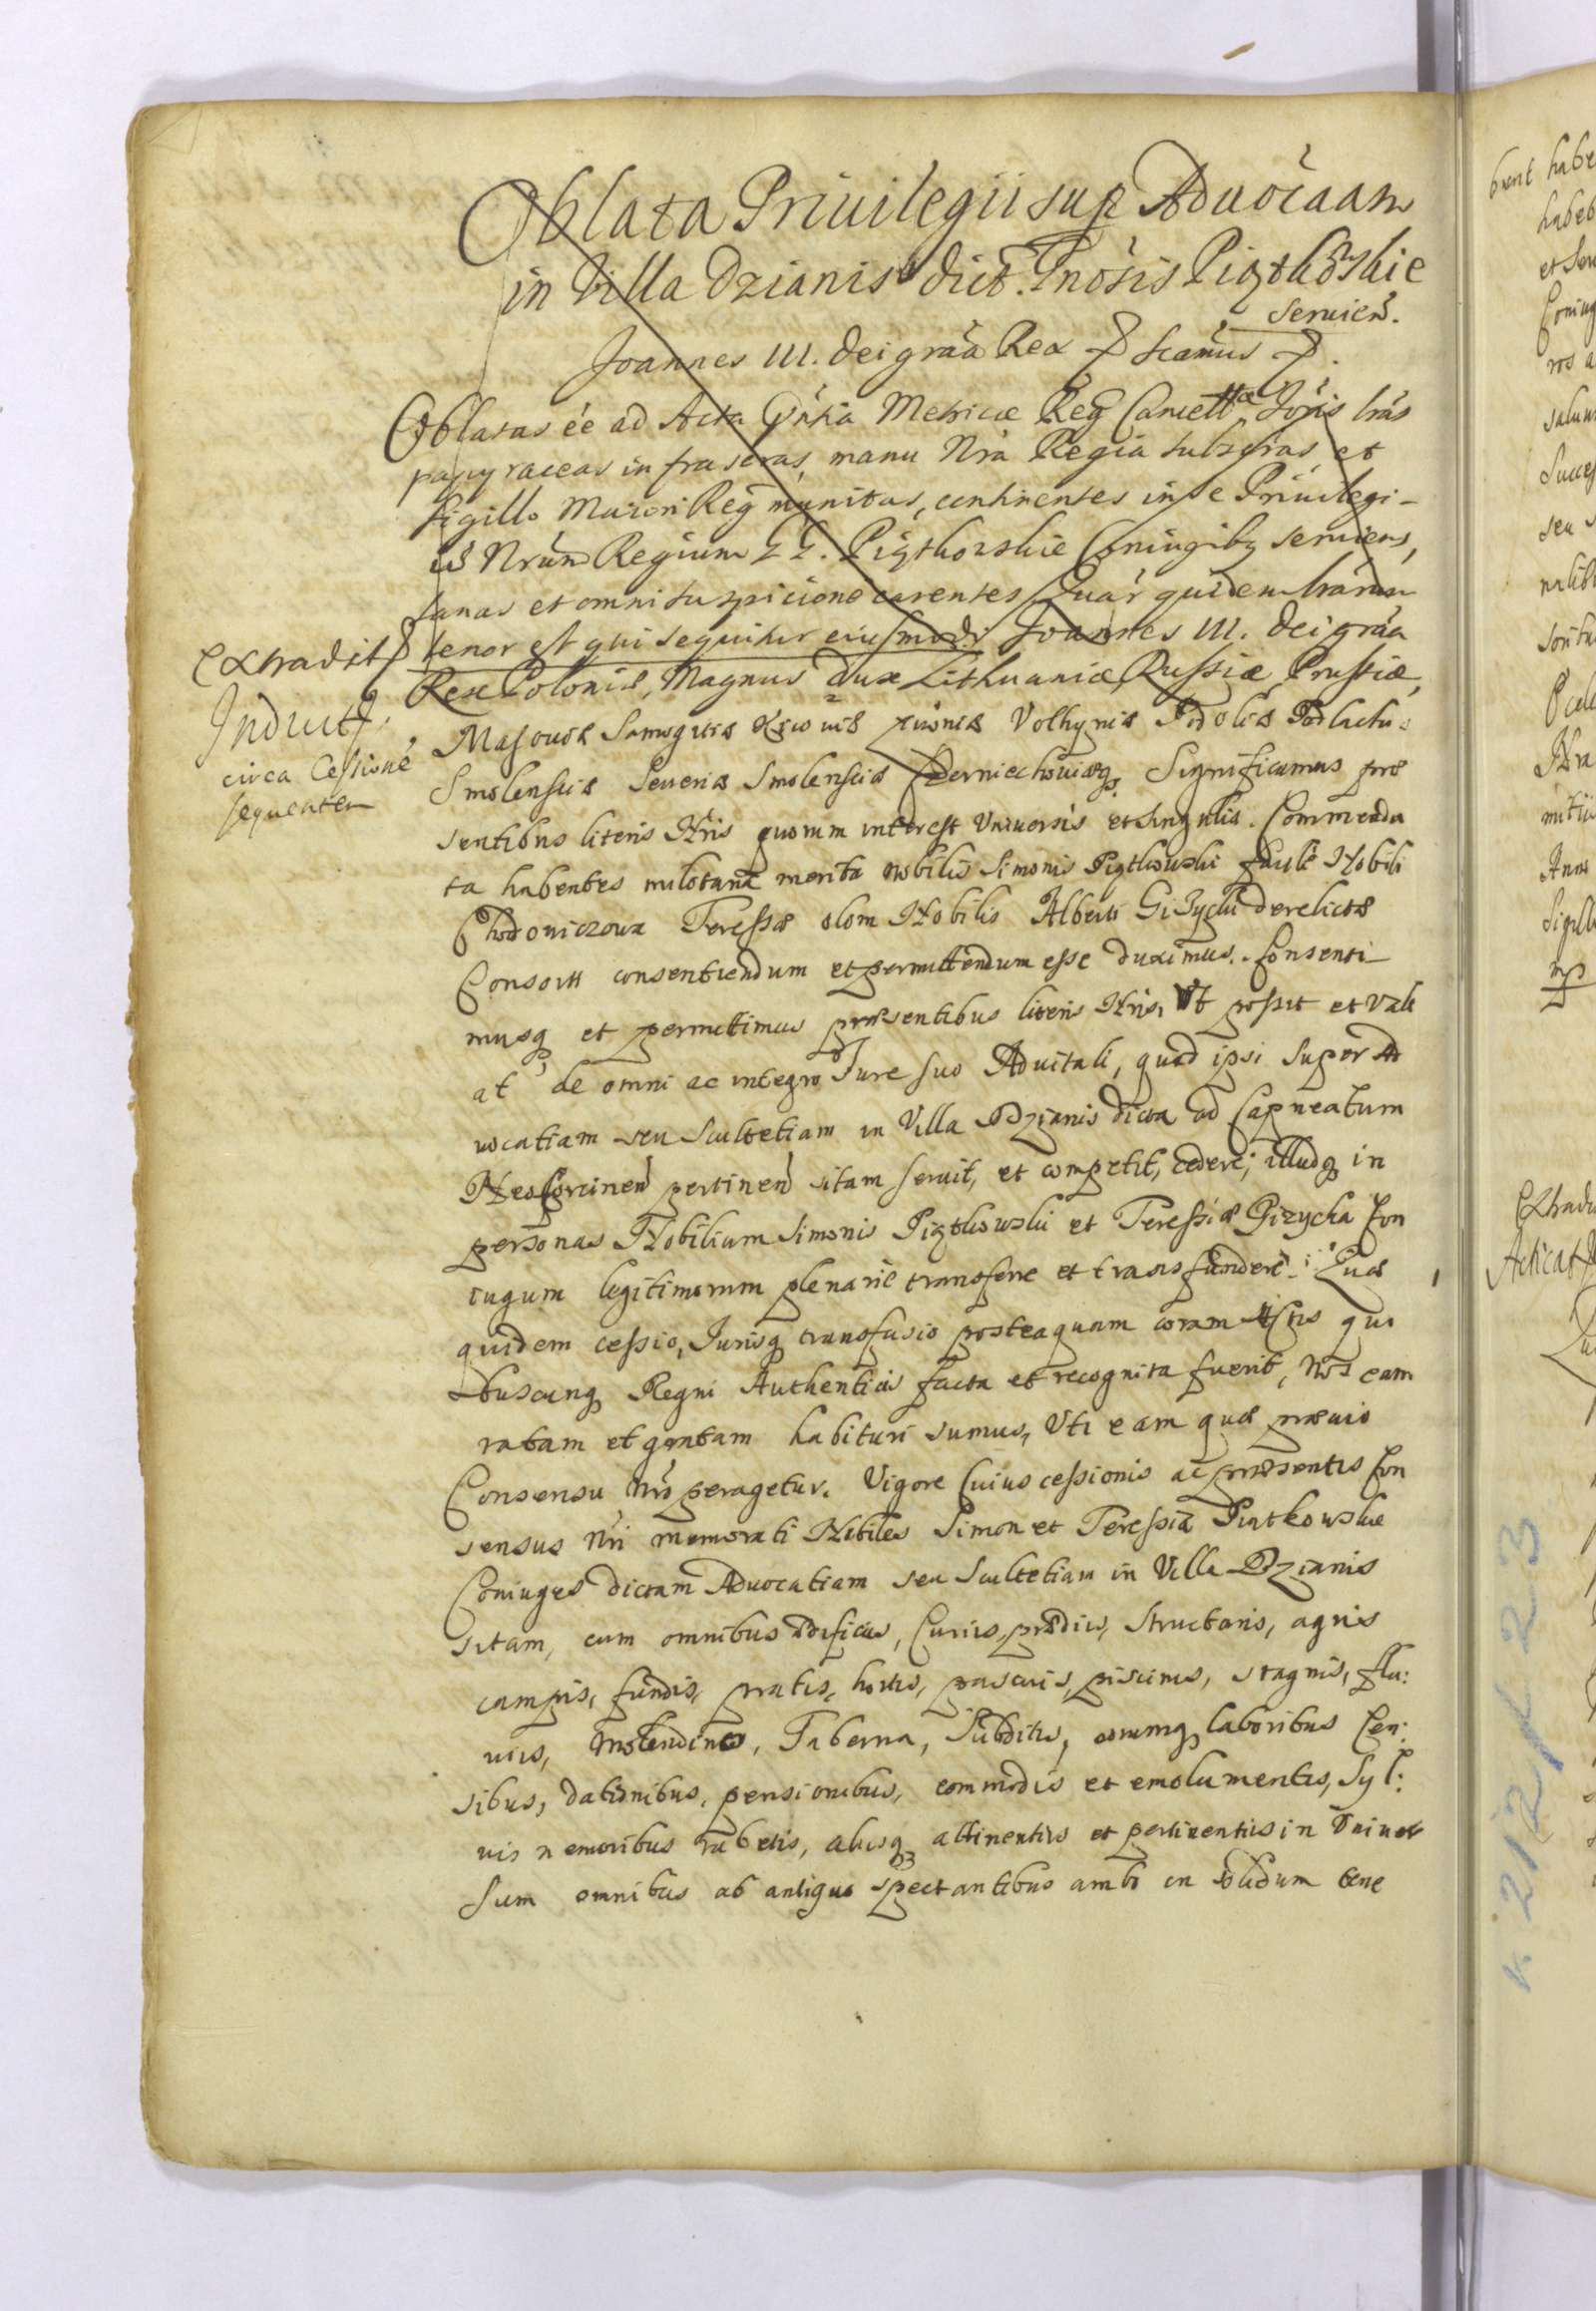 Oblata Priuilegii sup Aduocaam
in Villa Dzianis dict. Gnosis Piątkowskie
seruien.
Joannes III. Dei graa Rex & Scamus &.
Oblatas ee ad Acta Pntia Metricæ Reg Cancellæ Joris lras
papyraceas infrascras, manu Nra Regia subscras, et
sigillo Maiori Reg munitas, continentes in se Priuilegi-
u Nrum Regium GG. Piątkowskie Coniugibq seruiens,
sanas et omni suspicione carentes Quar quidem lrarum
tenor est qui sequitur eiusmodi Joannes III. Dei graa
Rex Poloniæ, Magnus Dux Lithuaniæ, Russiæ, Prussiæ,
Masouiæ Samogitiæ Kiiouiæ Liuoniæ Volhyniæ Podoliæ Podlachiæ
Smolensciæ Seueriæ Smolensciæ Czerniechouiæq. Significamus præ
sentibus literis Nris quorum interest Vniuersis et singulis. Commenda
ta habentes militaria merita nobilis Simonis Piątkowski facile Nobili
Chodoniczowa Teressæ olom Nobilis Alberti Giżycki derelictæ
Consorti consentiendum et permittendum esse duximus. Consenti-
musq et permittimus præsentibus literis Nris, Vt possit et vale
at de omni ac integro Jure suo Aduitali, quod ipsi super Ad
uocatiam seu Scultetiam in Villa Dzianis dicta ad Capneatum
Neoforcinen pertinen sitam seruit, et competit, cedere; illudq in
personas Nobilium Simonis Piątkowski et Teressiæ Giżycka Con
iugum legitimorum plenarie transferre et transfundere. Quæ
quidem cessio, Jurisq transfusio posteaquam coram Actis qui
buscunq Regni Authenticis facta et recognita fuerit, Nos eam
ratam et gratam habituri sumus, Vti eam quæ præuio
Consensu Nro peragetur. Vigore Cuius cessionis ac præsentis Con
sensus Nri memorati Nobiles Simon et Teressia Piatkowskie
Coniuges dictam Aduocatiam seu Scultetiam in Villa Dzianis
sitam, cum omnibus ædificiis, Curiis, prædiis, structuris, agris
campis, fundis, pratis, hortis, pascuis, piscinis, stagnis, flu:
uiis, Molendino, Taberna, Subditis, eorumq laboribus Cen:
sibus, dationibus, pensionibus, commodis et emolumentis, Syl:
uis nemoribus rubetis, aliisq attinentiis et pertinentiis in Vniuer
sum omnibus ab antiquo spectantibus ambo in solidum tene
Extradit
Induct
circa Cessione
sequentem